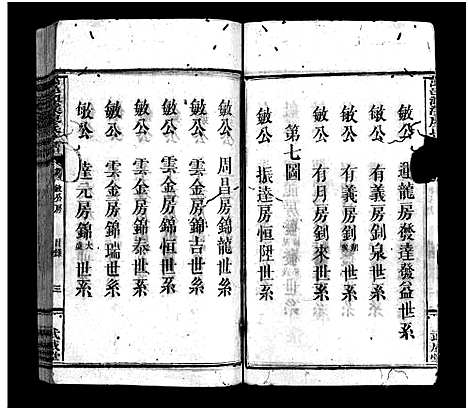 敏公 通龍房發達發益世系
敏公 有義房釗泉世系
敏公 有義房釗世系
敏公 有月房釗來世系
第七圖
敏公 振達房恒陞世系
敏公 周昌房錦龍世系
敏公 雲金房錦吉世系
敏公 雲金房錦恒世系
敏公 雲金房錦泰世系
敏公 雲金房錦瑞世系
敏公 達元房錦大盛世系
敏公房 目錄 三
武威堂